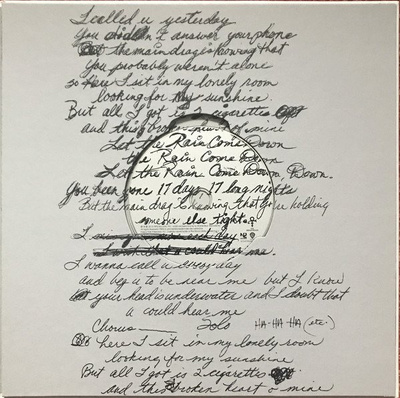 I called u yesterday
You didn't answer your phone
But the main drag is knowing that
You probably weren't alone
so here I sit in my lonely room
looking for my sunshine.
But all I got is 2 cigarettes
and this broken heart of mine
Let the Rain Come Down
Let the Rain Come Down
Let the Rain Come Down, Down.
You been gone 17 days 17 long nights
But the main drag is knowing that you're holding
someone else tight.
I wanna call u every day
and beg u to be near me but I know
your head is underwater and I doubt that
u could hear me
Chorus Solo HA-HA-HA (etc)
here I sit in my lonely room
looking for my sunshine
But all I got is 2 cigarettes
and this Broken heart o mine